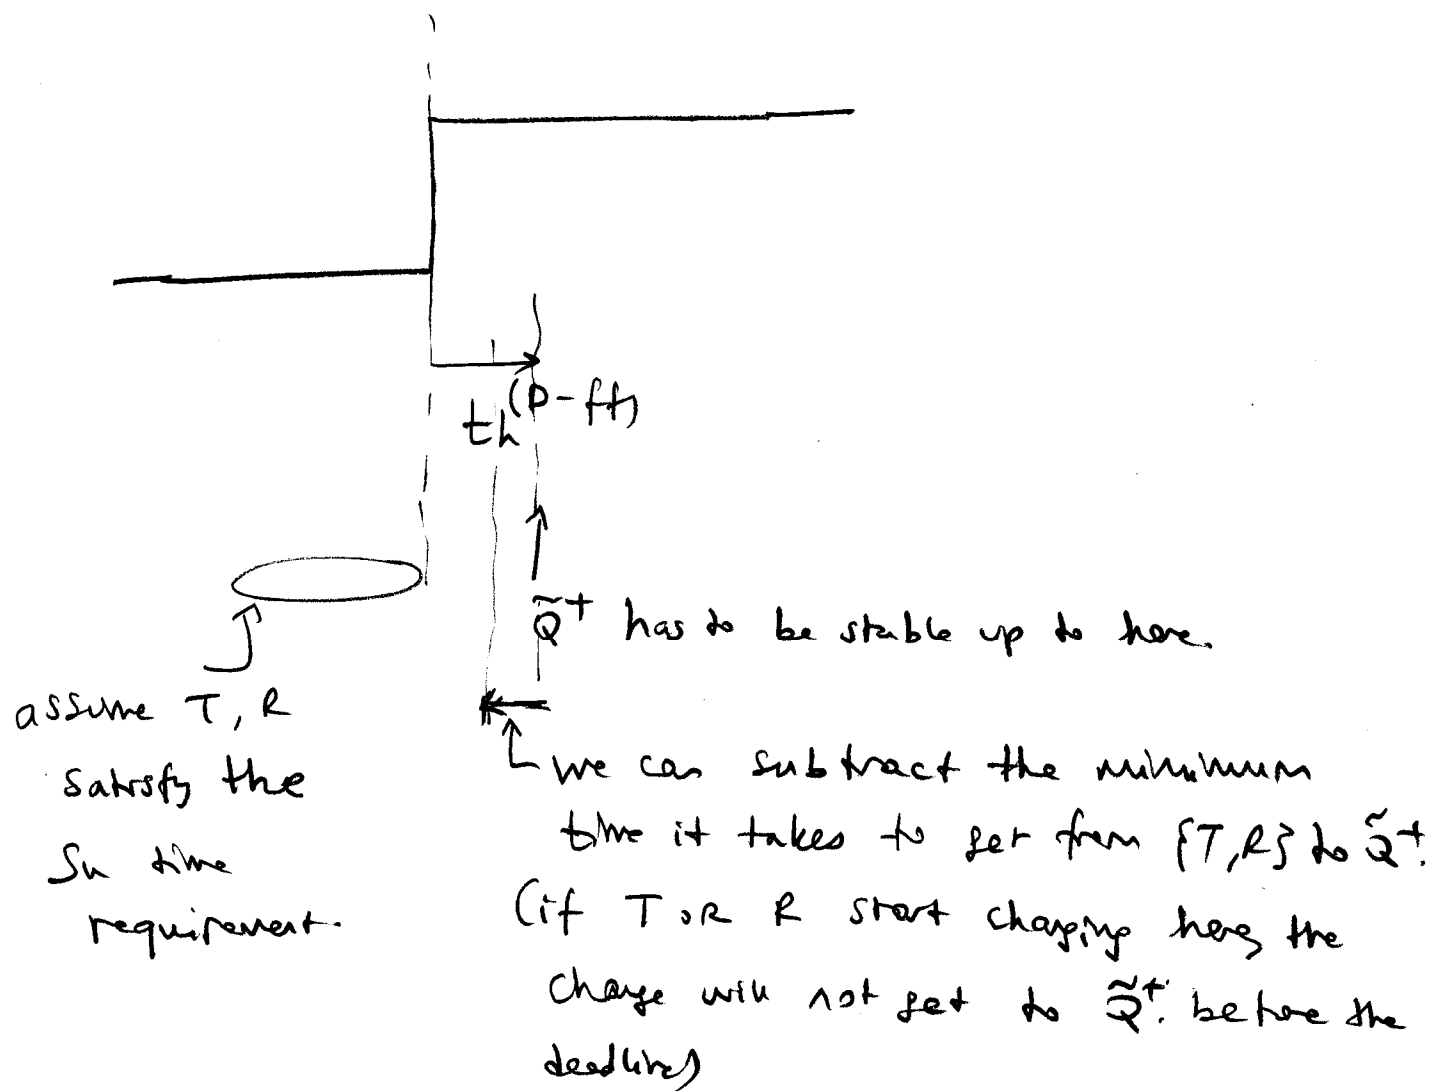 th (D-ff)
Q̃⁺ has to be stable up to here.
assume T, R
satisfy the
Su time
requirement.
we can subtract the minimum
time it takes to get from {T,R} to Q̃⁺.
(if T OR R start changing here, the
change will not get to Q̃⁺. before the
deadline)